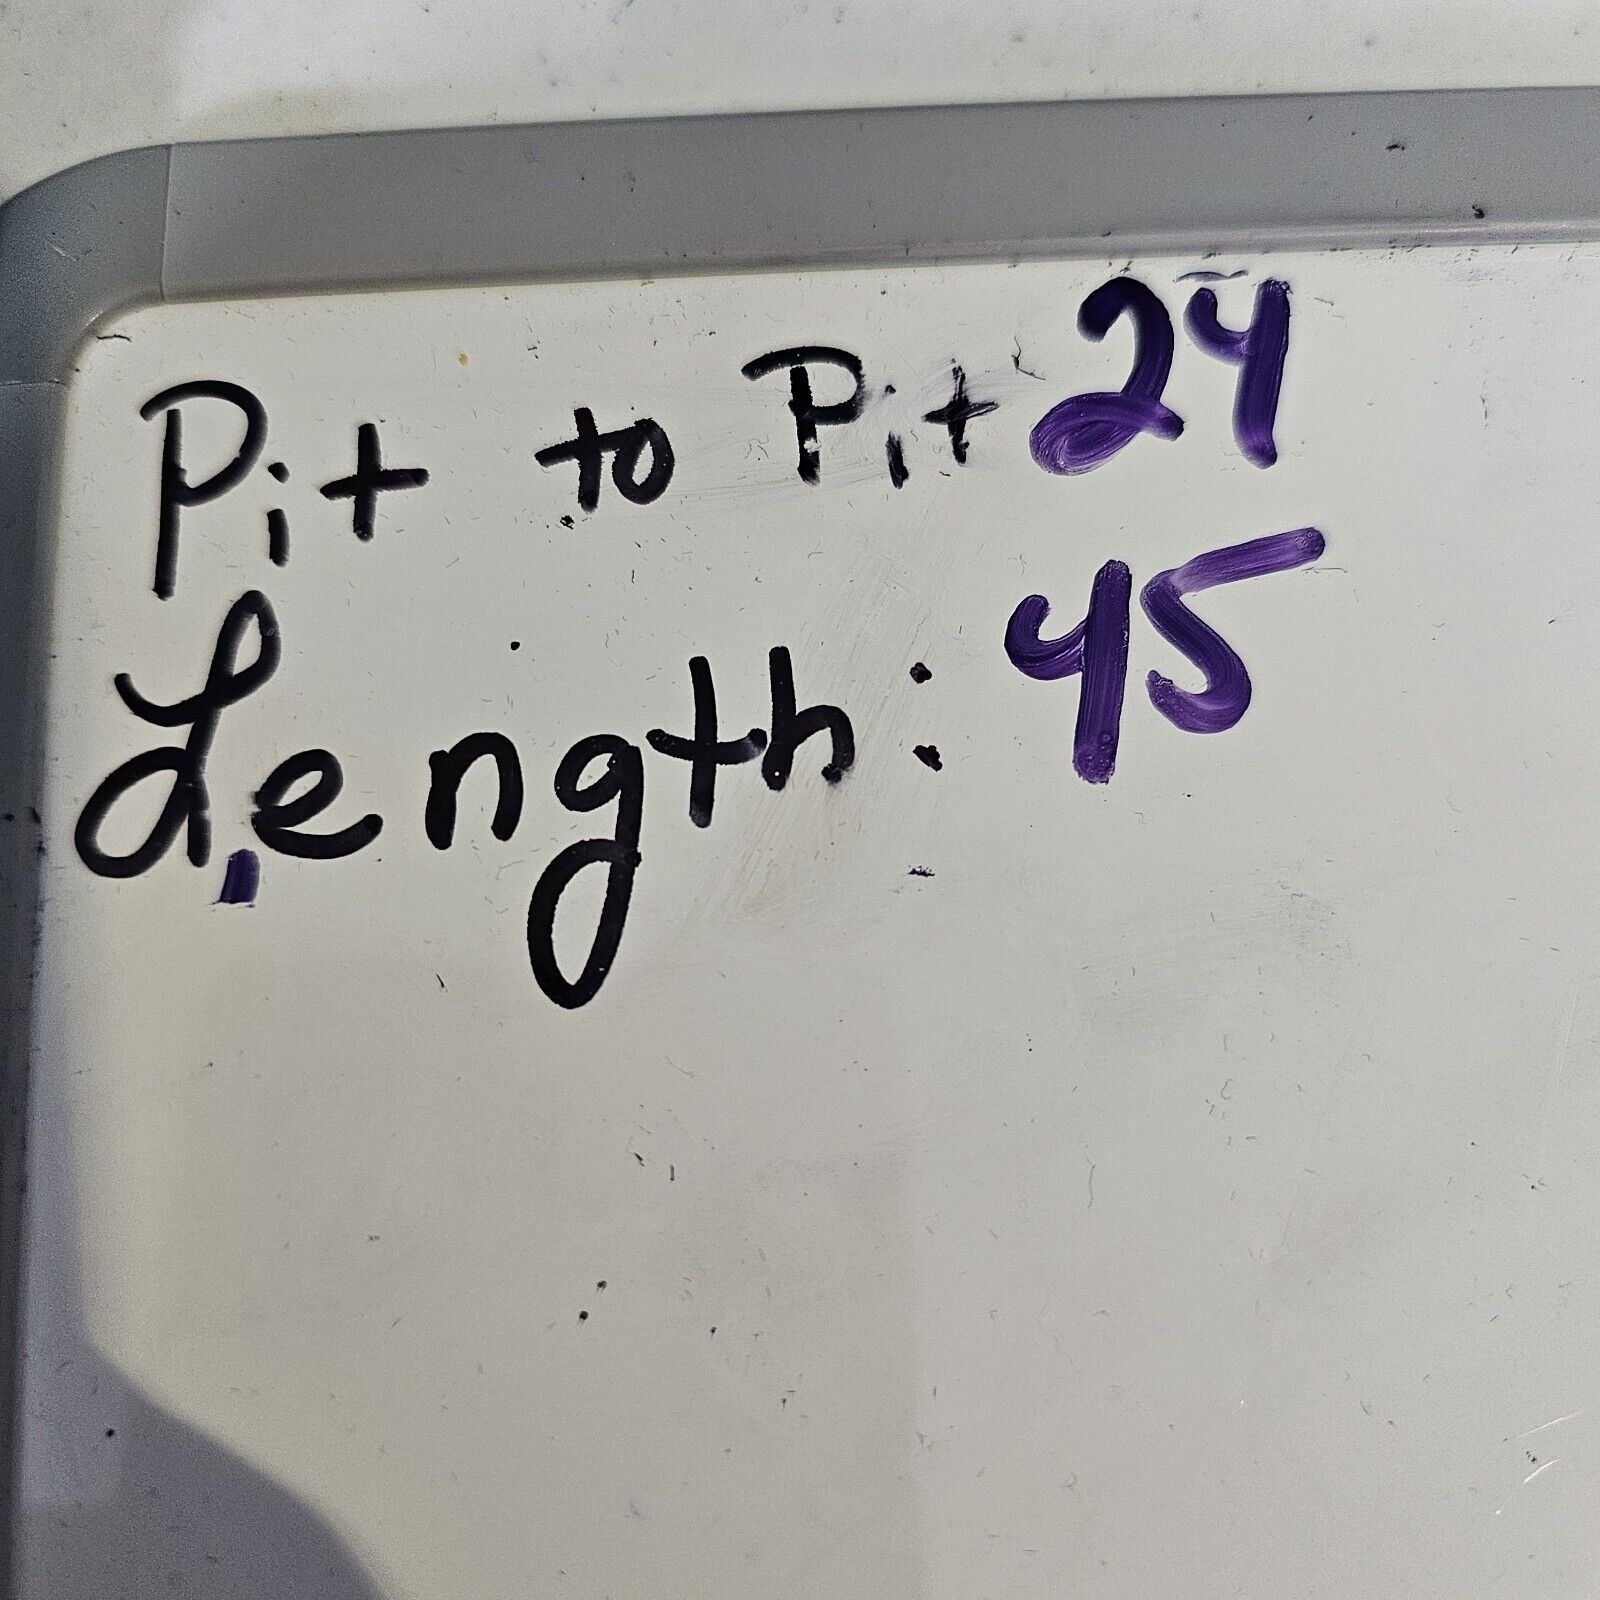 Pit to Pit 24
Length: 45